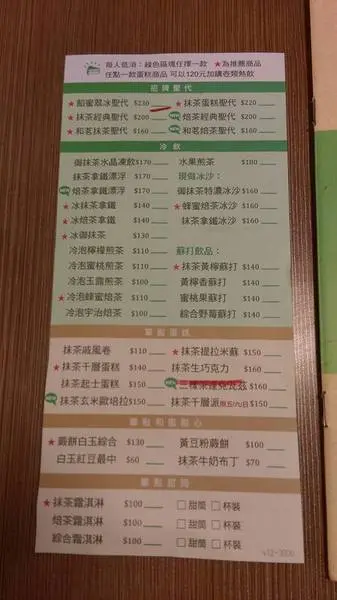 每人低消：綠色區塊任擇一款 ★為推薦商品
任點一款蛋糕商品 可以120元加購壺類熱飲
招牌聖代
★餡蜜翠冰聖代 $230 ★抹茶蛋糕聖代 $220
★抹茶經典聖代 $200 焙茶經典聖代 $200
★和茗抹茶聖代 $160 和茗焙茶聖代 $160
冷飲
御抹茶水晶凍飲 $170 水果煎茶 $180
抹茶拿鐵漂浮 $170 現做冰沙：
焙茶拿鐵漂浮 $170 御抹茶特濃冰沙 $160
★冰抹茶拿鐵 $140 ★蜂蜜焙茶冰沙 $160
★冰焙茶拿鐵 $140 抹茶拿鐵冰沙 $160
★冰御抹茶 $130
冷泡檸檬煎茶 $110 蘇打飲品：
冷泡蜜桃煎茶 $110 ★抹茶黃檸蘇打 $140
冷泡玉露煎茶 $100 黃檸香蘇打 $140
冷泡蜂蜜焙茶 $110 蜜桃果蘇打 $140
冷泡宇治焙茶 $100 綜合野莓蘇打 $140
單點蛋糕
抹茶戚風卷 $110 ★抹茶提拉米蘇 $150
★抹茶千層蛋糕 $140 抹茶生巧克力 $160
抹茶起士蛋糕 $150 $160
抹茶玄米歐培拉 $150 抹茶千層派限五/六/日 $150
單點和風點心
★蕨餅白玉綜合 $130 黃豆粉蕨餅 $100
白玉紅豆最中 $60 抹茶牛奶布丁 $70
單點甜筒
★抹茶霜淇淋 $100 □甜筒 □杯裝
焙茶霜淇淋 $100 □甜筒 □杯裝
綜合霜淇淋 $100 □甜筒 □杯裝